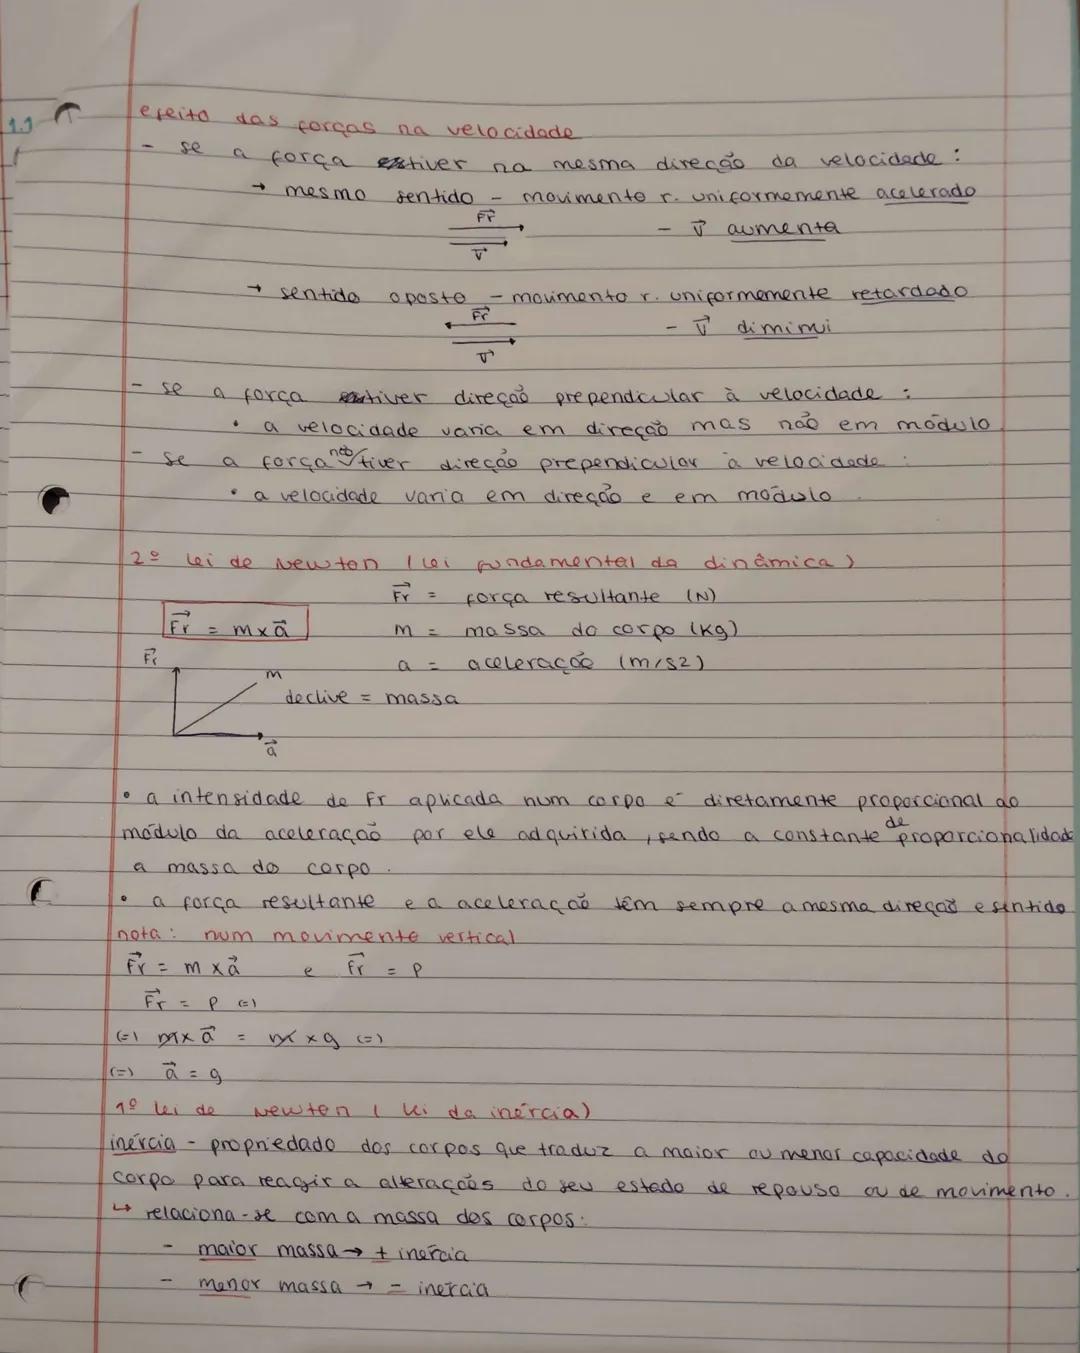 1.1
efeito das forças na velocidade
- se a força estiver na mesma direcção da velocidade:
→ mesmo sentido - movimento r. uniformemente acelerado
F⃗r
- v⃗ aumenta
v⃗
→ sentido oposto - movimento r. uniformemente retardado
F⃗r
- v⃗ diminui
v⃗
- se a força tiver direção prependicular à velocidade:
• a velocidade varia em direção mas não em módulo
- se a força não tiver direção prependicular à velocidade:
• a velocidade varia em direção e em módulo
2º lei de Newton (lei fundamental da dinâmica)
F⃗r = força resultante (N)
F⃗r = m x a⃗
m = massa do corpo (kg)
F⃗r
a = aceleração (m/s2)
m
declive = massa
a⃗
• a intensidade de Fr aplicada num corpo é diretamente proporcional ao
módulo da aceleração por ele adquirida, sendo a constante de proporcionalidade
a massa do corpo.
• a força resultante e a aceleração têm sempre a mesma direção e sentido
nota: num movimento vertical
F⃗r = m x a⃗ e F⃗r = P
F⃗r = P (=)
(=) m x a⃗ = m x g (=)
(=) a⃗ = g
1º lei de Newton (lei da inércia)
inércia - propriedado dos corpos que traduz a maior ou menor capacidade do
corpo para reagir a alterações do seu estado de repouso ou de movimento.
↳ relaciona-se com a massa dos corpos:
- maior massa → + inércia
- menor massa → - inércia